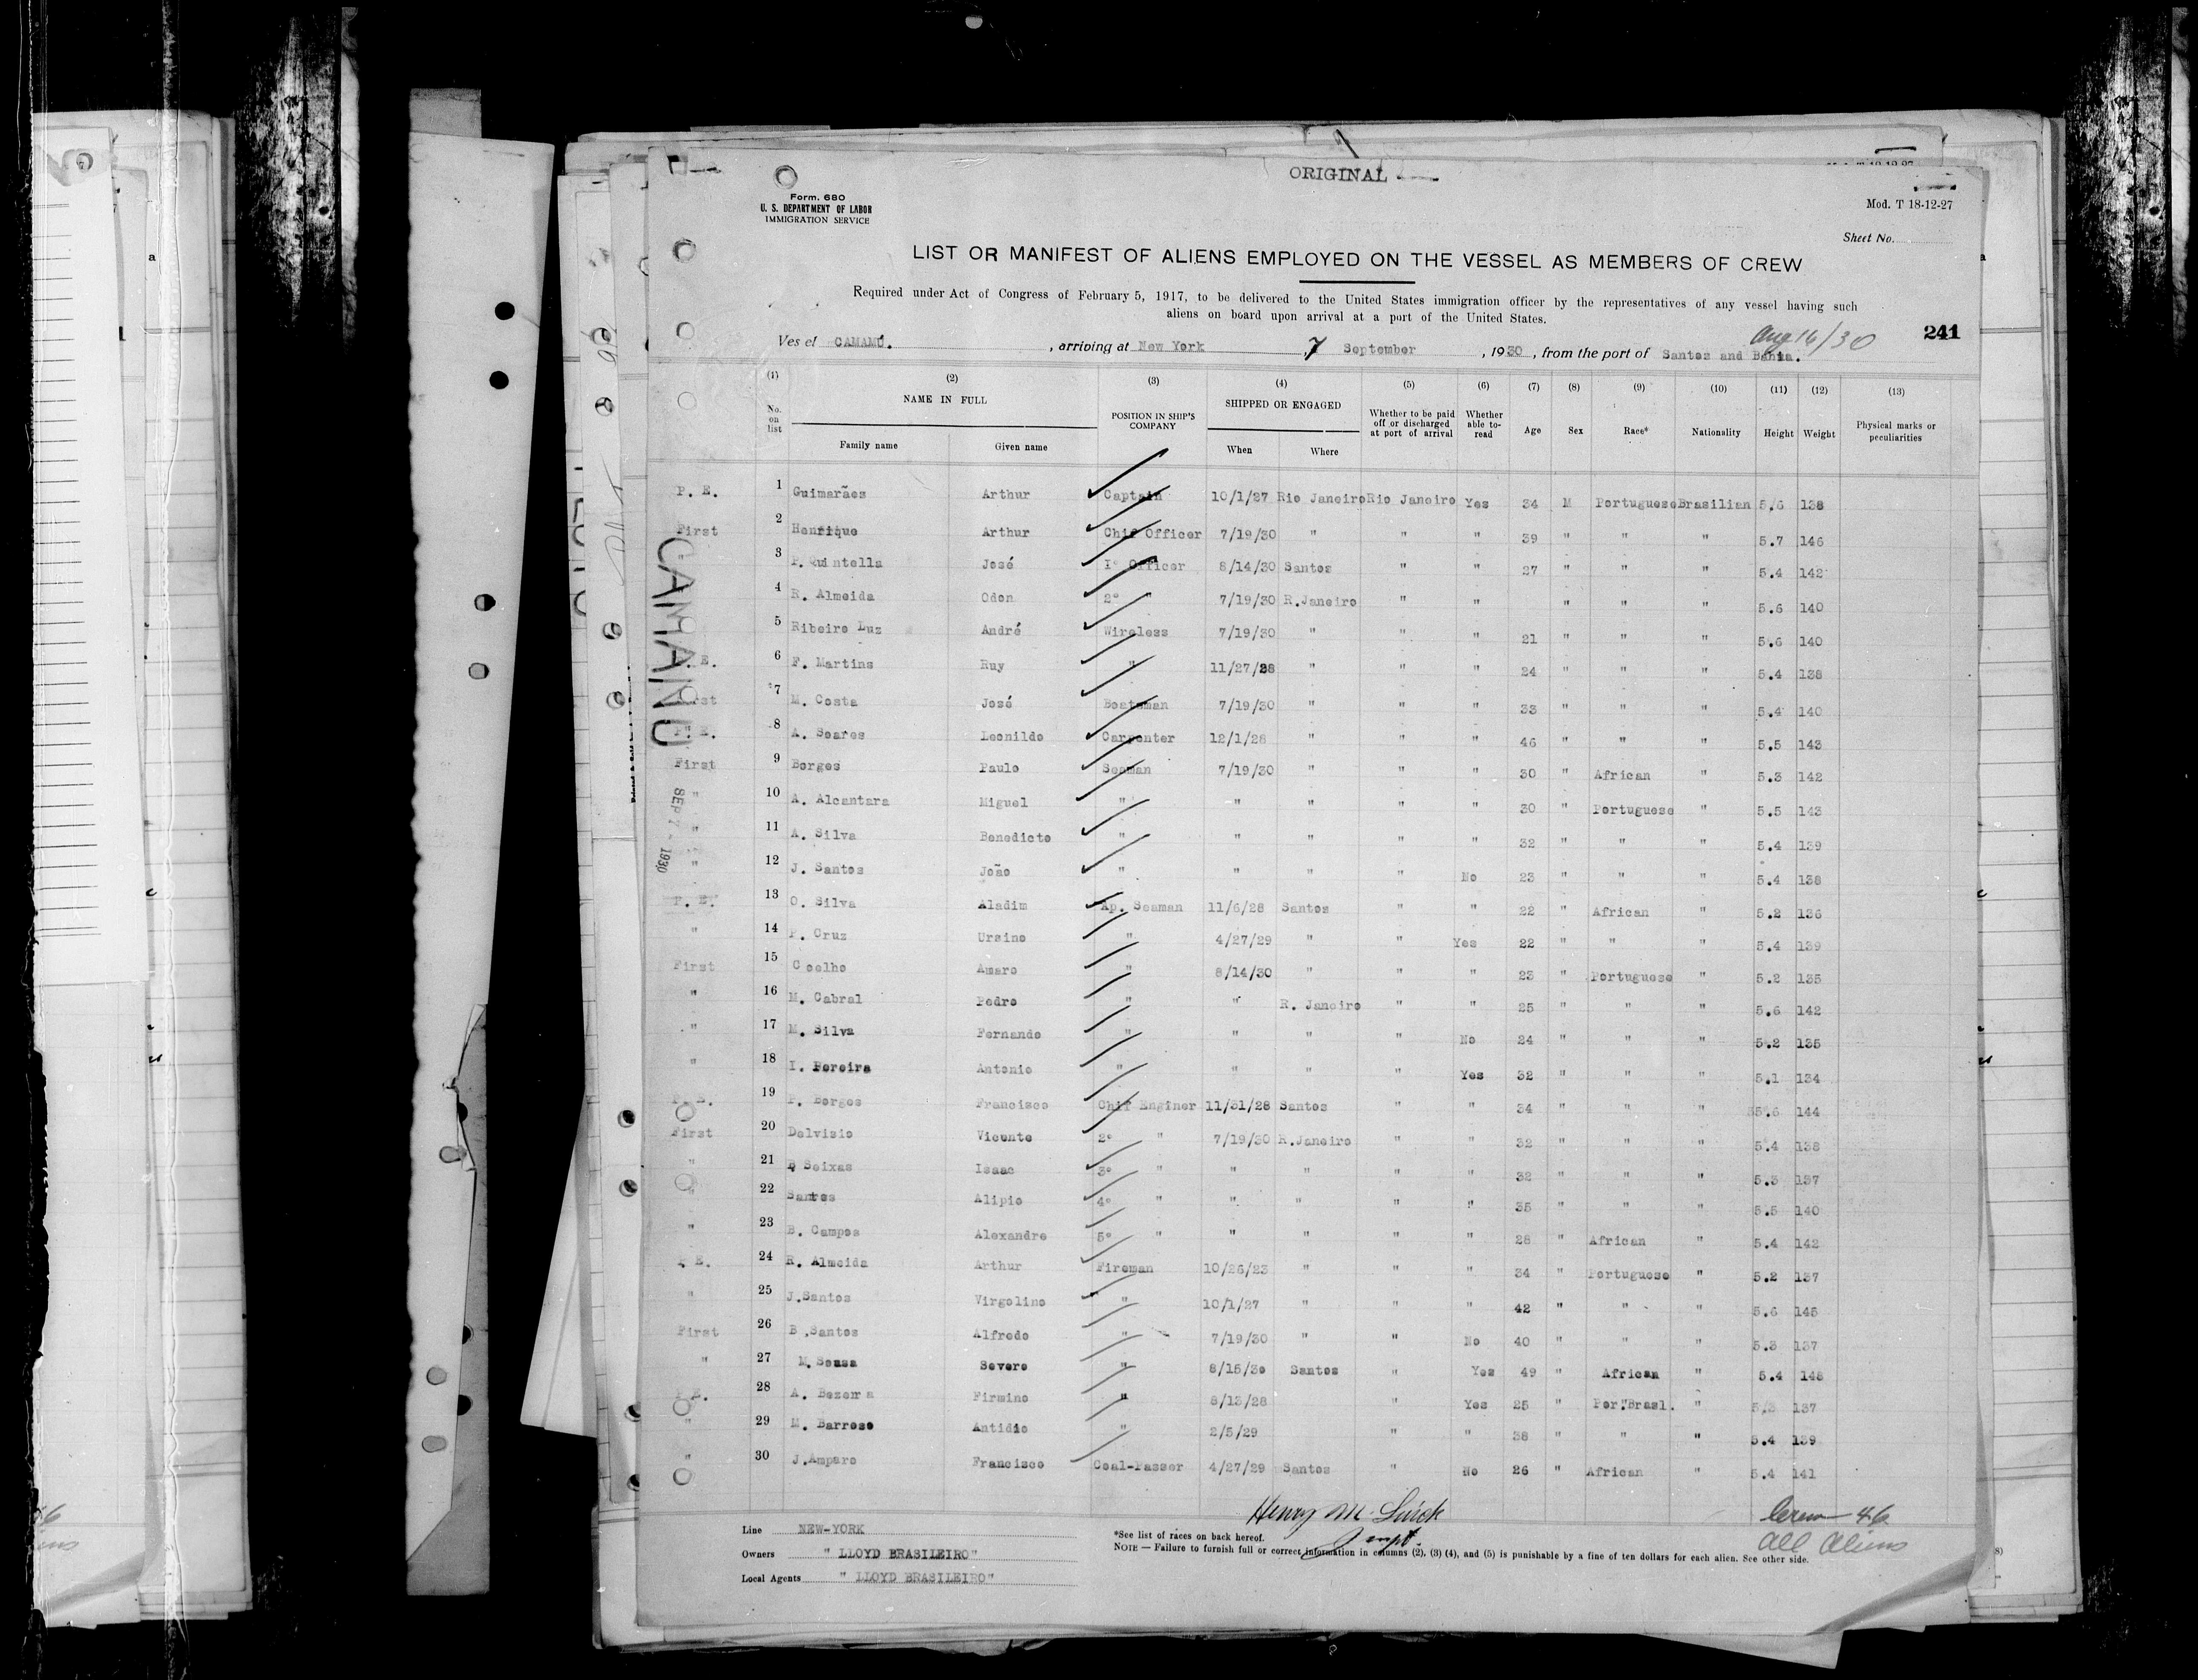 ORIGINAL
Form. 680
U. S. DEPARTMENT OF LABOR
IMMIGRATION SERVICE
Mod. T 18-12-27
Sheet No.
LIST OR MANIFEST OF ALIENS EMPLOYED ON THE VESSEL AS MEMBERS OF CREW
Required under Act of Congress of February 5, 1917, to be delivered to the United States immigration officer by the representatives of any vessel having such
aliens on board upon arrival at a port of the United States.
Aug 16/30 241
Ves el CAMAMÚ. , arriving at New York 7 September , 1930 , from the port of Santos and Bahia.
(1) (2) (3) (4) (5) (6) (7) (8) (9) (10) (11) (12) (13)
No. on list NAME IN FULL Family name Given name POSITION IN SHIP'S COMPANY SHIPPED OR ENGAGED When Where Whether to be paid off or discharged at port of arrival Whether able to- read Age Sex Race* Nationality Height Weight Physical marks or peculiarities
P. E. 1 Guimarães Arthur Captain 10/1/27 Rio Janeiro Rio Janeiro Yes 34 M Portuguese Brasilian 5.6 138
First 2 Henrique Arthur Chif Officer 7/19/30 " " " 39 " " " 5.7 146
" 3 P. Quintella José 1º Officer 8/14/30 Santos " " 27 " " " 5.4 142
4 R. Almeida Odon 2º " 7/19/30 R.Janeiro " " " " " 5.6 140
5 Ribeiro Luz André Wireless 7/19/30 " " " 21 " " " 5.6 140
. E. 6 F. Martins Ruy " 11/27/28 " " " 24 " " " 5.4 138
First 7 M. Costa José Boatsman 7/19/30 " " " 33 " " " 5.4 140
P. E. 8 A. Soares Leonildo Carpenter 12/1/28 " " " 46 " " " 5.5 143
First 9 Borges Paulo Seaman 7/19/30 " " " 30 " African " 5.3 142
" 10 A. Alcantara Miguel " " " " " 30 " Portuguese " 5.5 143
" 11 A. Silva Benedicto " " " " " 32 " " " 5.4 139
" 12 J. Santos João " " " " No 23 " " " 5.4 138
P. E. 13 O. Silva Aladim Ap. Seaman 11/6/28 Santos " " 22 " African " 5.2 136
" 14 P. Cruz Ursino " 4/27/29 " " Yes 22 " " " 5.4 139
First 15 Coelho Amaro " 8/14/30 " " " 23 " Portuguese " 5.2 135
" 16 M. Cabral Pedro " " R. Janeiro " " 25 " " " 5.6 142
" 17 M. Silva Fernando " " " " No 24 " " " 5.2 135
" 18 I. Pereira Antonio " " " " Yes 32 " " " 5.1 134
P. E. 19 P. Borges Francisco Chif Enginer 11/31/28 Santos " " 34 " " " 55.6 144
First 20 Delvisio Vicente 2º " 7/19/30 R.Janeiro " " 32 " " " 5.4 138
" 21 B Seixas Isaac 3º " " " " " 32 " " " 5.3 137
" 22 Santos Alipio 4º " " " " " 35 " " " 5.5 140
" 23 B. Campos Alexandre 5º " " " " " 28 " African " 5.4 142
P. E. 24 R. Almeida Arthur Fireman 10/26/23 " " " 34 " Portuguese " 5.2 137
" 25 J.Santos Virgolino " 10/1/27 " " " 42 " " " 5.6 145
First 26 B .Santos Alfredo " 7/19/30 " " No 40 " " " 5.3 137
" 27 M. Sousa Severo " 8/15/30 Santos " Yes 49 " African " 5.4 148
P.E. 28 A. Bezerra Firmino " 8/13/28 " Yes 25 " Por."Brasl. " 5.3 137
" 29 M. Barroso Antidio " 2/5/29 " " 38 " " " 5.4 139
" 30 J.Amparo Francisco Coal-Passer 4/27/29 Santos " No 26 " African " 5.4 141
CAMAMU
SEP 7 - 1930
Henry M. Crew 46
All Aliens
Line NEW-YORK
Owners " LLOYD BRASILEIRO"
Local Agents " LLOYD BRASILEIRO"
*See list of races on back hereof.
NOTE — Failure to furnish full or correct information in columns (2), (3) (4), and (5) is punishable by a fine of ten dollars for each alien. See other side.